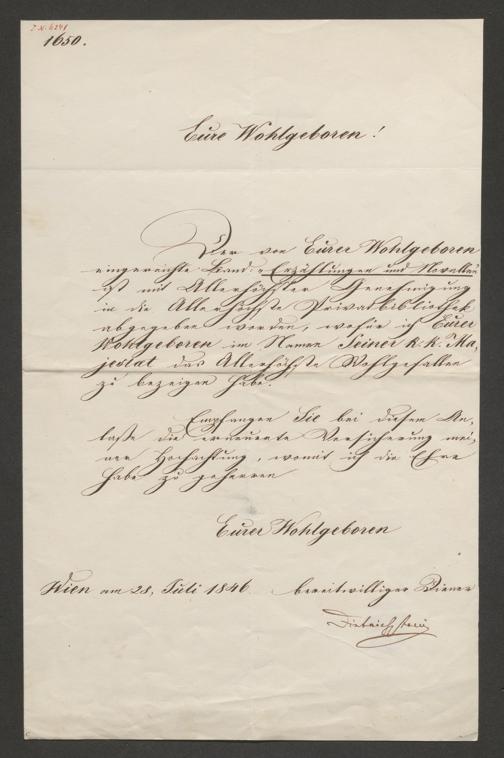 I.N. 6241
1650.
Eure Wohlgeboren!
Der von Eurer Wohlgeboren
eingereichte Band: „Erzählungen und Novellen
ist mit Allerhöchster Genehmigung
in die Allerhöchste Privatbibliothek
abgegeben worden, wofür ich Eurer
Wohlgeboren im Namen Seiner k. k. Ma,
jestät das Allerhöchste Wohlgefallen
zu bezeigen habe.
Empfangen Sie bei diesem An,
laße die erneuerte Versicherung mei,
ner Hochachtung, womit ich die Ehre
habe zu geharren
Eurer Wohlgeboren
Wien am 28, Juli 1846.
bereitwilliger Diener
Dietrichstein